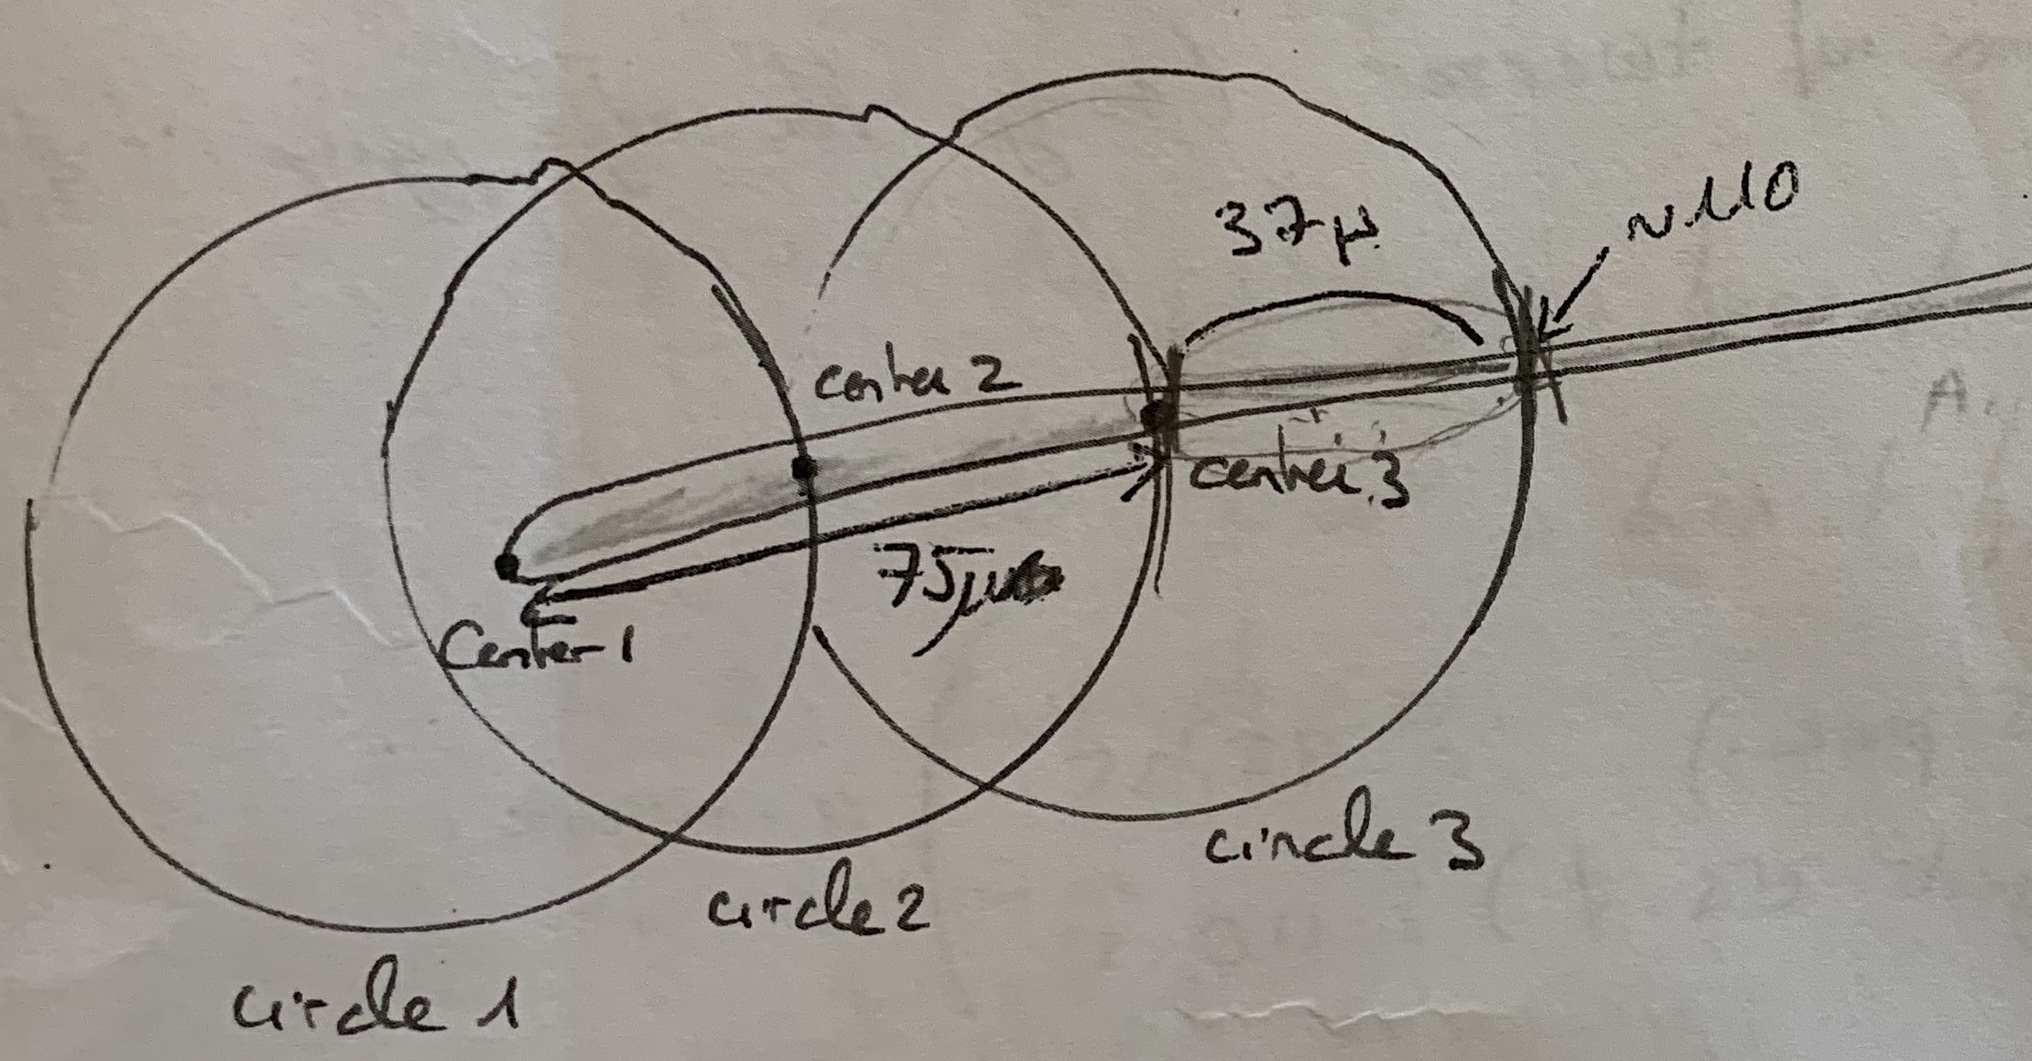 ~110
37μ
center 2
center 3
75μm
Center 1
circle 3
circle 2
circle 1